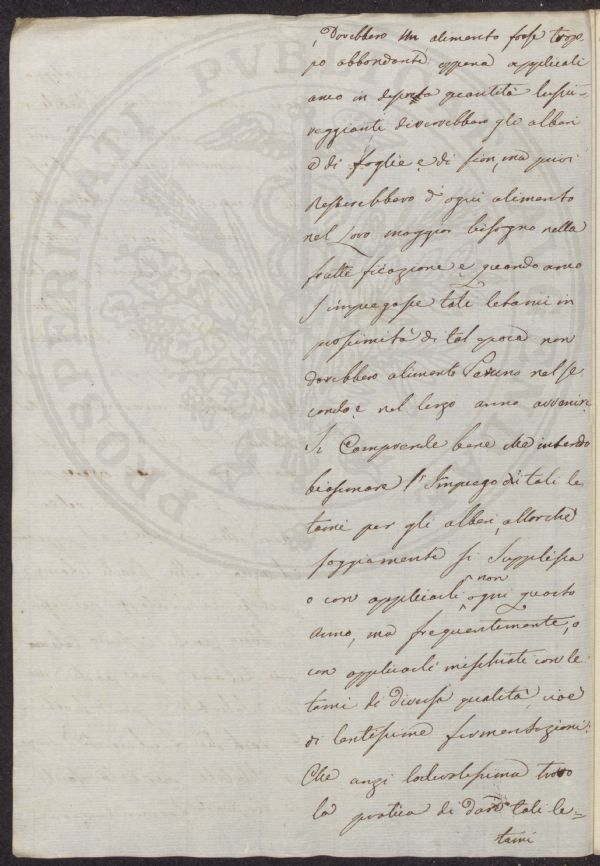 Dovrebbero un alimento forse trop=
po abbondante appena applicati
anco in discreta quantità lussu=
reggianti diverrebbero gli alberi
e di foglie e di fiori, ma privi
resterebbero d'ogni alimento
nel loro maggior bisogno nella
frutteficazione e quando anco
s'impiegasse tali letami in
prossimità di tal epoca non
darebbero alimento veruno nel se
condo e nel terzo anno avvenire
Si comprende bene che intendo
biasimare l'impiego di tali le
tami per gli alberi, allorchè
saggiamente si supplisca
o con applicarli non ogni quarto
anno, ma frequentemente, o
con applicarli mischiati con le
tami di diversa qualità, cioè
di lentissime fermentazioni.
Che anzi lodevolissima trovo
la pratica di dare tali le=
tami
PROSPERITATI PUBLICAE AUGENDAE